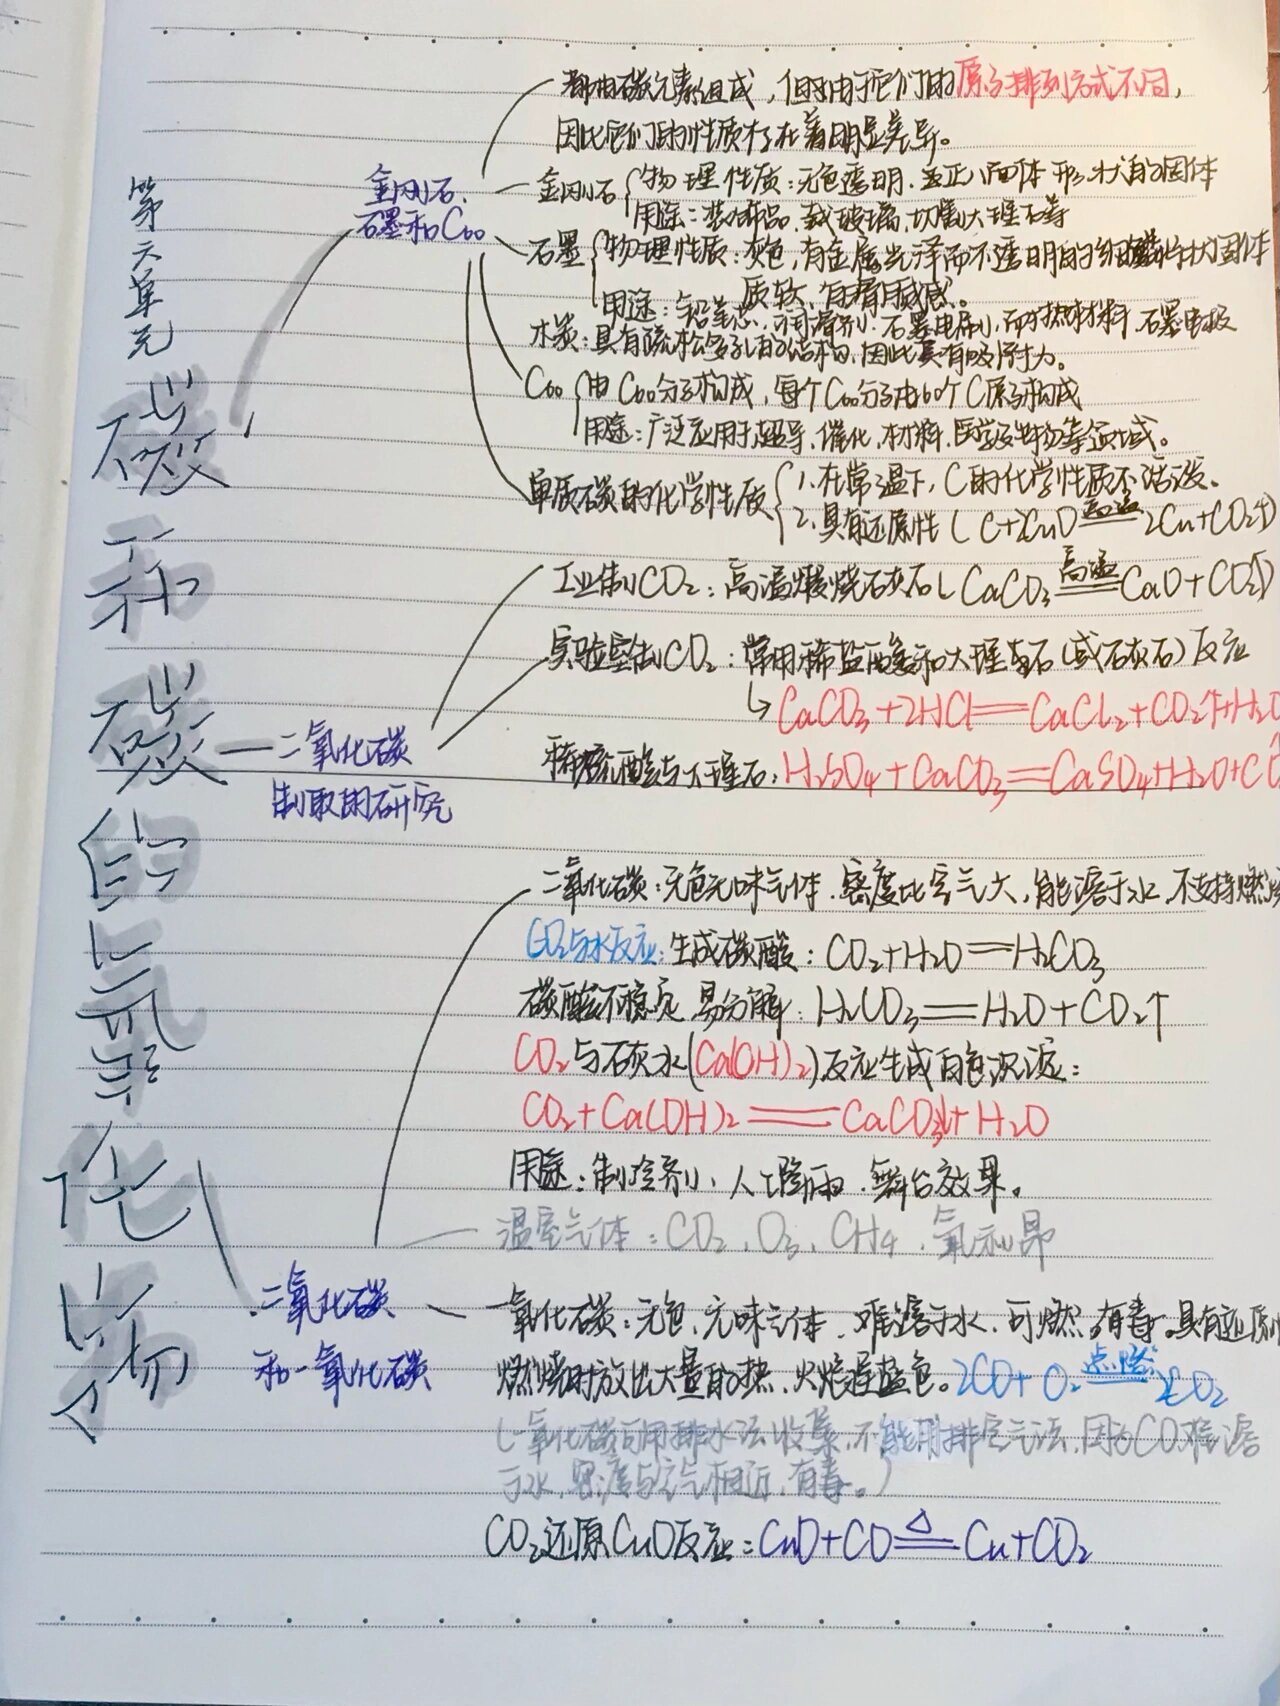 第六单元
碳和碳的氧化物
金刚石、
石墨和C₆₀
都由碳元素组成，但由于它们的原子排列方式不同，
因此它们的性质存在着明显差异。
金刚石 物理性质：无色透明、正八面体形状的固体
用途：装饰品、裁玻璃、切割大理石等
石墨 物理性质：灰色，有金属光泽而不透明的细鳞片状固体
质软、有滑腻感。
用途：铅笔芯、润滑剂、石墨电刷、耐热材料、石墨电极
木炭：具有疏松多孔的结构，因此具有吸附力。
C₆₀ 由C₆₀分子构成，每个C₆₀分子由60个C原子构成
用途：广泛应用于超导、催化、材料、医学及生物等领域。
单质碳的化学性质 1、在常温下，C的化学性质不活泼。
2、具有还原性（C+2CuO 高温 2Cu+CO₂↑）
二氧化碳
制取的研究
工业制CO₂：高温煅烧石灰石（CaCO₃ 高温 CaO+CO₂↑）
实验室制CO₂：常用稀盐酸和大理石（或石灰石）反应
↳CaCO₃+2HCl═CaCl₂+CO₂↑+H₂O
稀硫酸与大理石：H₂SO₄+CaCO₃═CaSO₄+H₂O+CO
二氧化碳
和一氧化碳
二氧化碳：无色无味气体、密度比空气大，能溶于水、不支持燃烧
CO₂与水反应：生成碳酸：CO₂+H₂O═H₂CO₃
碳酸不稳定 易分解：H₂CO₃═H₂O+CO₂↑
CO₂与石灰水（Ca(OH)₂）反应生成白色沉淀：
CO₂+Ca(OH)₂═CaCO₃↓+H₂O
用途：制冷剂、人工降雨、舞台效果。
温室气体：CO₂、O₃、CH₄、氟利昂
一氧化碳：无色、无味气体、难溶于水、可燃。有毒。具有还原性
燃烧时放出大量的热、火焰呈蓝色。2CO+O₂ 点燃 2CO₂
（一氧化碳可用排水法收集，不能用排空气法，因为CO难溶
于水，密度与空气相近，有毒。）
CO₂还原CuO反应：CuO+CO △═ Cu+CO₂